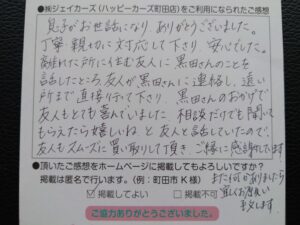 ●㈱ジェイカーズ(ハッピーカーズ町田店)をご利用になられたご感想
息子がお世話になり、ありがとうございました。
丁寧 親切に対応して下さり、安心でした。
離れた所に住む友人に黒田さんのことを
話したところ、友人が黒田さんに連絡し、遠い
所まで直接行って下さり、黒田さんのおかげで
友人もとても喜んでいました。相談だけでも聞いて
もらえたら嬉しいねと友人と話していたので、
友人もスムーズに買い取りして頂き、ご縁に感謝しています。
●頂いたご感想をホームページに掲載してもよろしいですか?
掲載は匿名で行います。(例:町田市K様)
また何かありましたら
宜しくお願い
します。
☑掲載してよい □掲載不可
ご協力ありがとうございました。